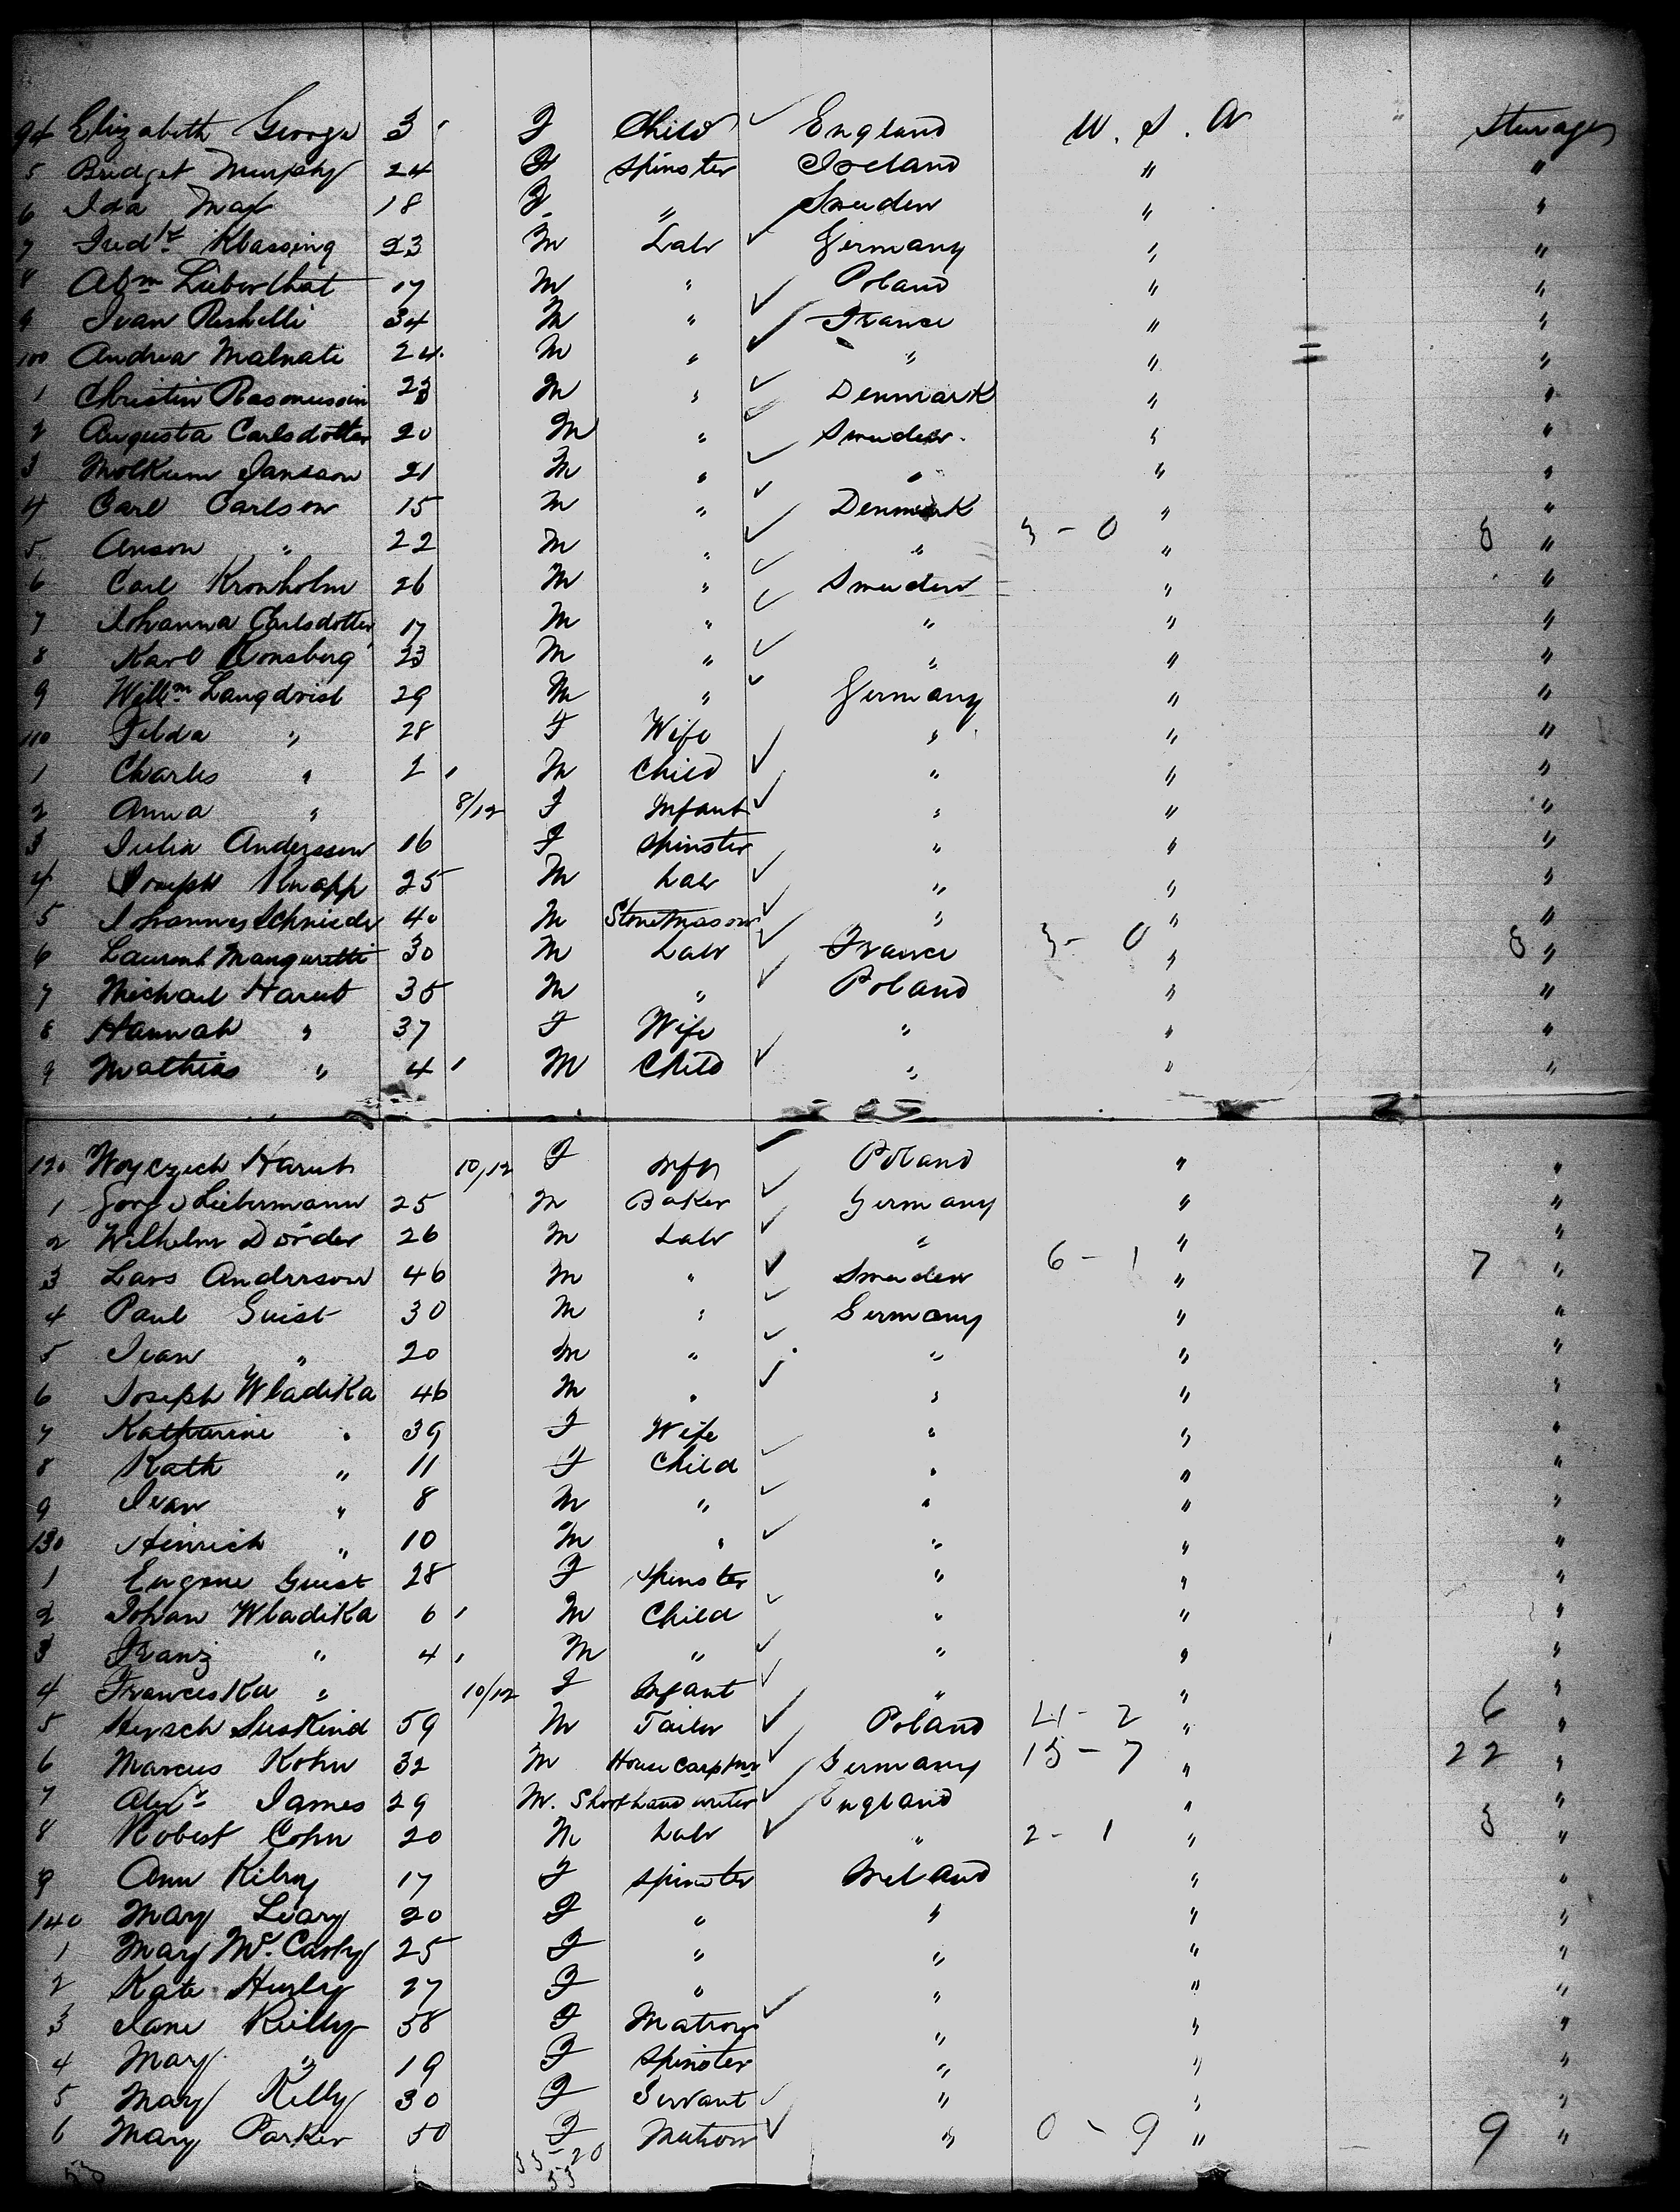 94 Elizabeth George 3 F Child England U.S.A Steerage
5 Bridget Murphy 24 F Spinster Ireland " "
6 Ida Max 18 F " Sweden " "
7 Fredk Klassing 23 M Labr Germany " "
8 Abm Lieberthat 17 M " Poland " "
9 Ivan Rishelli 34 M " France " "
100 Andrea Malnati 24 M " " " "
1 Christin Rasmussin 23 M " Denmark " "
2 Augusta Carlsdotter 20 M " Sweden " "
3 Molkum Jansson 21 M " " " "
4 Carl Carlson 15 M " Denmark " "
5 Anson " 22 M " " 3 - 0 " "
6 Carl Kronholm 26 M " Sweden " "
7 Johanna Carlsdotter 17 M " " " "
8 Karl 23 M " " " "
9 Willm Langdrist 29 M " Germany " "
110 Filda " 28 F Wife " " "
1 Charles " 2 M Child " " "
2 Anna " 8/12 F Infant " " "
3 Julia Anderssen 16 F Spinster " " "
4 Joseph Knapp 25 M Labr " " "
5 Johannes Schnieder 40 M Stonemason " " "
6 Laurent Manguretti 30 M Labr France 3 - 0 " "
7 Michael Harut 35 M " Poland " "
8 Hannah " 37 F Wife " " "
9 Mathias " 4 M Child " " "
120 Woyczech Harut 10/12 F Inft Poland " "
1 Liebermann 25 M Baker Germany " "
2 Wilhelm Dörder 26 M Labr " " "
3 Lars Anderson 46 M " Sweden 6 - 1 " 7 "
4 Paul Guist 30 M " Germany " "
5 Ivan " 20 M " " " "
6 Joseph Wladika 46 M " " " "
7 Katharine " 39 F Wife " " "
8 Kath " 11 F Child " " "
9 Ivan " 8 M " " " "
130 Heinrich " 10 M " " " "
1 Eugene Guist 28 F Spinster " " "
2 Johan Wladika 6 M Child " " "
3 Franz " 4 M " " " "
4 Franceska " 10/12 F Infant " " "
5 Hersch Suskind 59 M Tailor Poland 4 - 2 " 6 "
6 Marcus Kohn 32 M House Carptnr Germany 15 - 7 " 22 "
7 Alexr James 29 M. Shorthand writer England " "
8 Robert Cohn 20 M Labr " 2 - 1 " 3 "
9 Ann Kilroy 17 F Spinster Ireland " "
140 Mary Leary 20 F " " " "
1 Mary McCarthy 25 F " " " "
2 Kate Hurley 27 F " " " "
3 Jane Reilly 58 F Matron " " "
4 Mary " 19 F Spinster " " "
5 Mary Kelly 30 F Servant " " "
6 Mary Parker 50 F Matron " 0 - 9 " 9 "
33 - 20
53